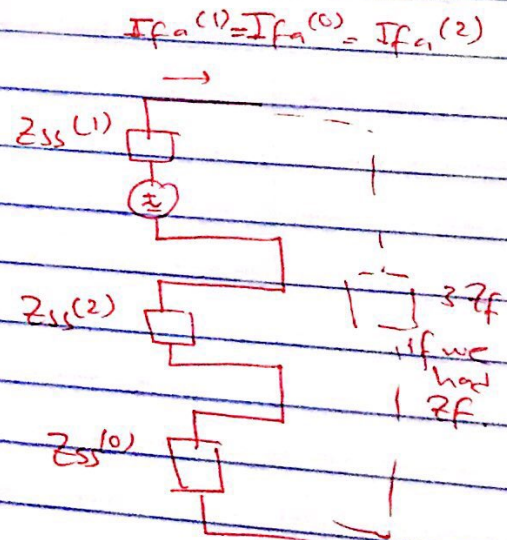 Ifa⁽¹⁾=Ifa⁽⁰⁾= Ifa⁽²⁾
Zss⁽¹⁾
Zss⁽²⁾
3Zf
if we
had
Zf
Zss⁽⁰⁾